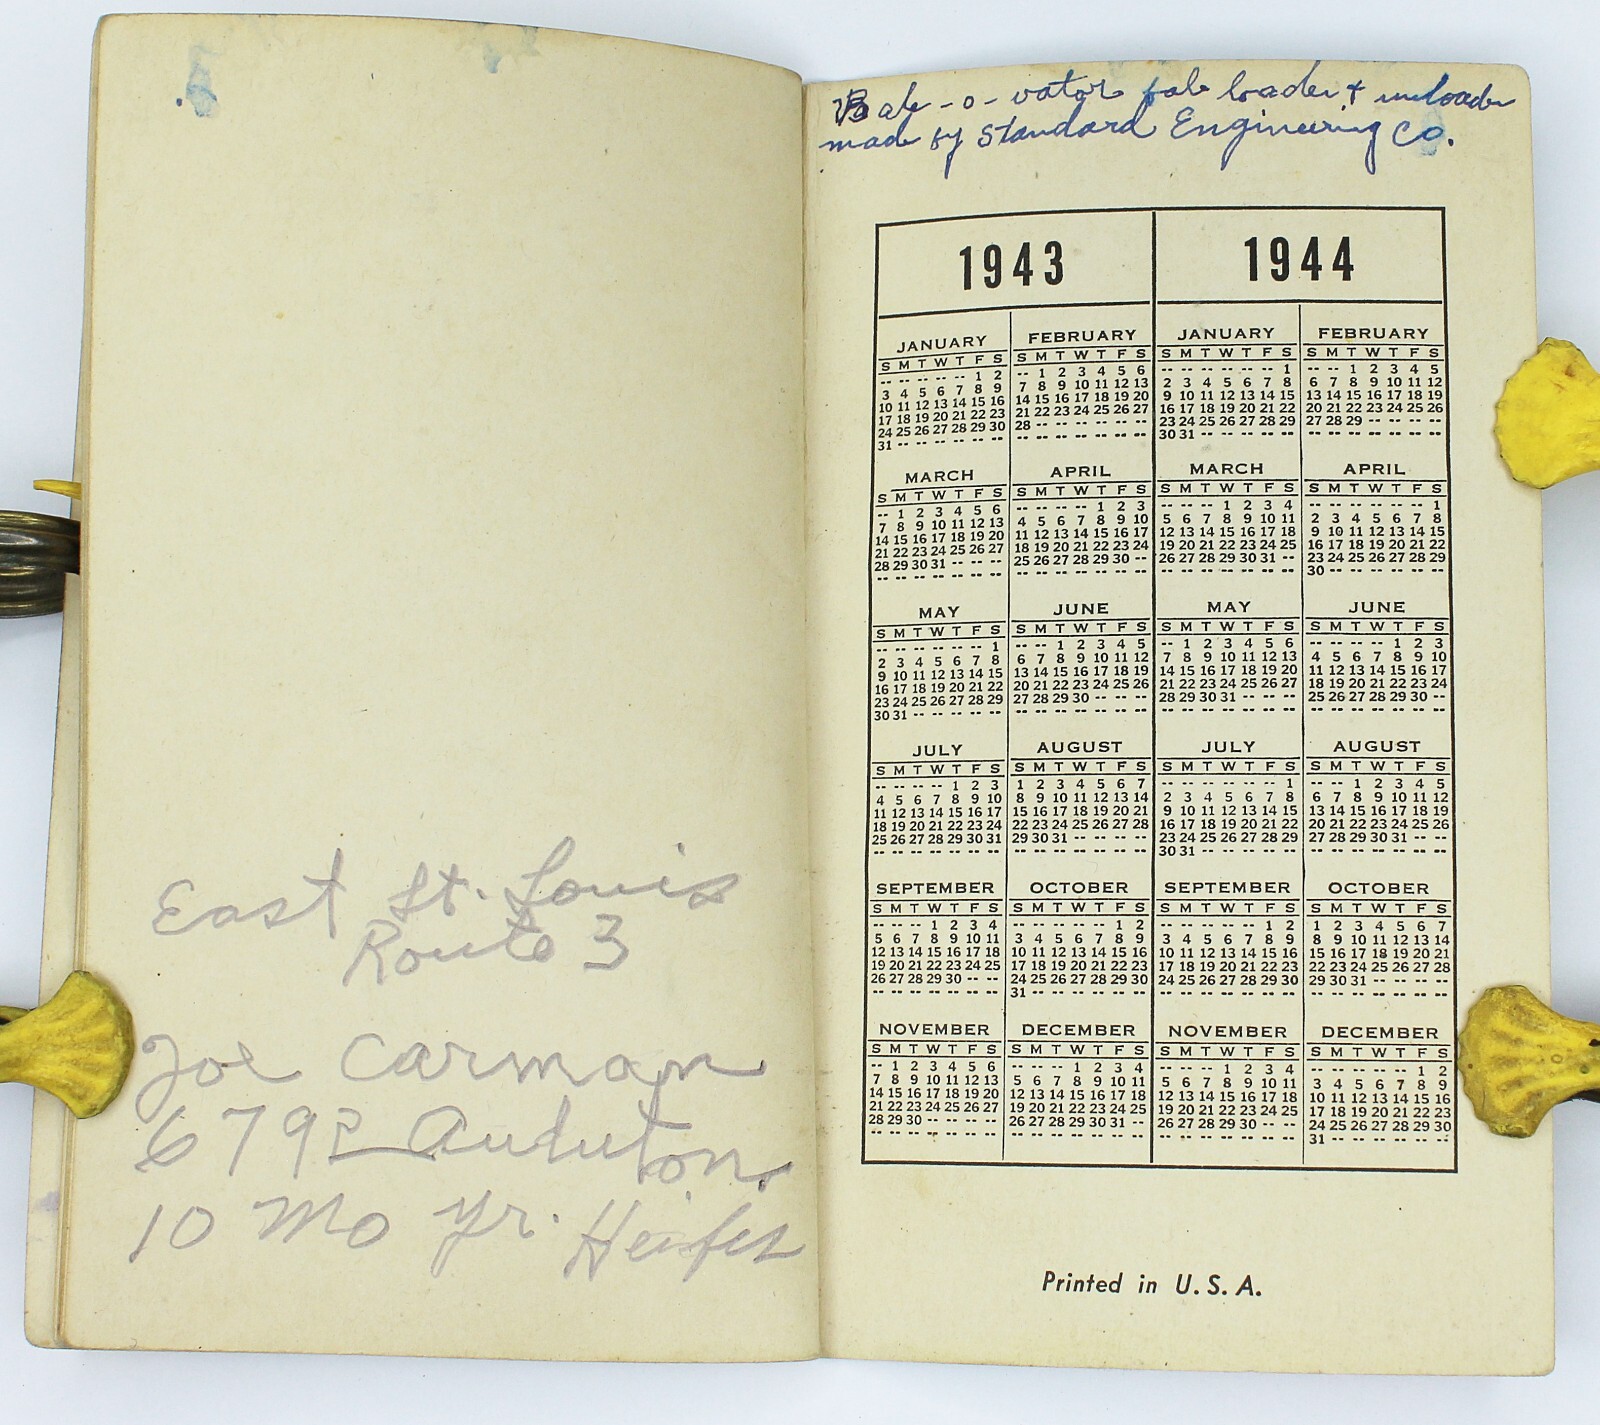 East St. Louis
Route 3
Joe Carman
6792 Audubon
10 Mo yr. Heifer
Bale -o- vator bale loader + unloader
made by Standard Engineering Co.
1943
JANUARY
S M T W T F S
-- -- -- -- -- 1 2
3 4 5 6 7 8 9
10 11 12 13 14 15 16
17 18 19 20 21 22 23
24 25 26 27 28 29 30
31 -- -- -- -- -- --
FEBRUARY
S M T W T F S
-- 1 2 3 4 5 6
7 8 9 10 11 12 13
14 15 16 17 18 19 20
21 22 23 24 25 26 27
28 -- -- -- -- -- --
-- -- -- -- -- -- --
MARCH
S M T W T F S
-- 1 2 3 4 5 6
7 8 9 10 11 12 13
14 15 16 17 18 19 20
21 22 23 24 25 26 27
28 29 30 31 -- -- --
-- -- -- -- -- -- --
APRIL
S M T W T F S
-- -- -- -- 1 2 3
4 5 6 7 8 9 10
11 12 13 14 15 16 17
18 19 20 21 22 23 24
25 26 27 28 29 30 --
-- -- -- -- -- -- --
MAY
S M T W T F S
-- -- -- -- -- -- 1
2 3 4 5 6 7 8
9 10 11 12 13 14 15
16 17 18 19 20 21 22
23 24 25 26 27 28 29
30 31 -- -- -- -- --
JUNE
S M T W T F S
-- -- 1 2 3 4 5
6 7 8 9 10 11 12
13 14 15 16 17 18 19
20 21 22 23 24 25 26
27 28 29 30 -- -- --
-- -- -- -- -- -- --
JULY
S M T W T F S
-- -- -- -- 1 2 3
4 5 6 7 8 9 10
11 12 13 14 15 16 17
18 19 20 21 22 23 24
25 26 27 28 29 30 31
-- -- -- -- -- -- --
AUGUST
S M T W T F S
1 2 3 4 5 6 7
8 9 10 11 12 13 14
15 16 17 18 19 20 21
22 23 24 25 26 27 28
29 30 31 -- -- -- --
-- -- -- -- -- -- --
SEPTEMBER
S M T W T F S
-- -- -- 1 2 3 4
5 6 7 8 9 10 11
12 13 14 15 16 17 18
19 20 21 22 23 24 25
26 27 28 29 30 -- --
-- -- -- -- -- -- --
OCTOBER
S M T W T F S
-- -- -- -- -- 1 2
3 4 5 6 7 8 9
10 11 12 13 14 15 16
17 18 19 20 21 22 23
24 25 26 27 28 29 30
31 -- -- -- -- -- --
NOVEMBER
S M T W T F S
-- 1 2 3 4 5 6
7 8 9 10 11 12 13
14 15 16 17 18 19 20
21 22 23 24 25 26 27
28 29 30 -- -- -- --
-- -- -- -- -- -- --
DECEMBER
S M T W T F S
-- -- -- 1 2 3 4
5 6 7 8 9 10 11
12 13 14 15 16 17 18
19 20 21 22 23 24 25
26 27 28 29 30 31 --
-- -- -- -- -- -- --
1944
JANUARY
S M T W T F S
-- -- -- -- -- -- 1
2 3 4 5 6 7 8
9 10 11 12 13 14 15
16 17 18 19 20 21 22
23 24 25 26 27 28 29
30 31 -- -- -- -- --
FEBRUARY
S M T W T F S
-- -- 1 2 3 4 5
6 7 8 9 10 11 12
13 14 15 16 17 18 19
20 21 22 23 24 25 26
27 28 29 -- -- -- --
-- -- -- -- -- -- --
MARCH
S M T W T F S
-- -- -- 1 2 3 4
5 6 7 8 9 10 11
12 13 14 15 16 17 18
19 20 21 22 23 24 25
26 27 28 29 30 31 --
-- -- -- -- -- -- --
APRIL
S M T W T F S
-- -- -- -- -- -- 1
2 3 4 5 6 7 8
9 10 11 12 13 14 15
16 17 18 19 20 21 22
23 24 25 26 27 28 29
30 -- -- -- -- -- --
MAY
S M T W T F S
-- 1 2 3 4 5 6
7 8 9 10 11 12 13
14 15 16 17 18 19 20
21 22 23 24 25 26 27
28 29 30 31 -- -- --
-- -- -- -- -- -- --
JUNE
S M T W T F S
-- -- -- -- 1 2 3
4 5 6 7 8 9 10
11 12 13 14 15 16 17
18 19 20 21 22 23 24
25 26 27 28 29 30 --
-- -- -- -- -- -- --
JULY
S M T W T F S
-- -- -- -- -- -- 1
2 3 4 5 6 7 8
9 10 11 12 13 14 15
16 17 18 19 20 21 22
23 24 25 26 27 28 29
30 31 -- -- -- -- --
AUGUST
S M T W T F S
-- -- 1 2 3 4 5
6 7 8 9 10 11 12
13 14 15 16 17 18 19
20 21 22 23 24 25 26
27 28 29 30 31 -- --
-- -- -- -- -- -- --
SEPTEMBER
S M T W T F S
-- -- -- -- -- 1 2
3 4 5 6 7 8 9
10 11 12 13 14 15 16
17 18 19 20 21 22 23
24 25 26 27 28 29 30
-- -- -- -- -- -- --
OCTOBER
S M T W T F S
1 2 3 4 5 6 7
8 9 10 11 12 13 14
15 16 17 18 19 20 21
22 23 24 25 26 27 28
29 30 31 -- -- -- --
-- -- -- -- -- -- --
NOVEMBER
S M T W T F S
-- -- -- 1 2 3 4
5 6 7 8 9 10 11
12 13 14 15 16 17 18
19 20 21 22 23 24 25
26 27 28 29 30 -- --
-- -- -- -- -- -- --
DECEMBER
S M T W T F S
-- -- -- -- -- 1 2
3 4 5 6 7 8 9
10 11 12 13 14 15 16
17 18 19 20 21 22 23
24 25 26 27 28 29 30
31 -- -- -- -- -- --
Printed in U. S. A.